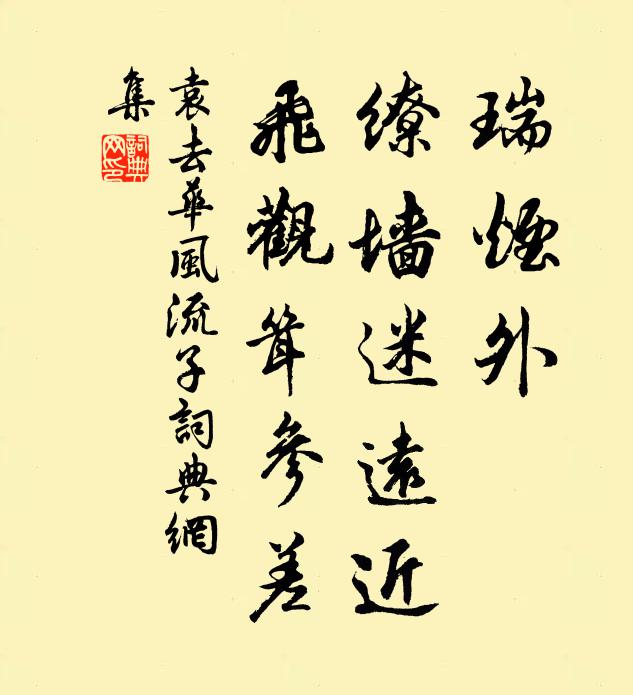 瑞煙外
繚墙迷遠近
飛觀聳參差
袁去華風流子詞典網
集
詞典網印